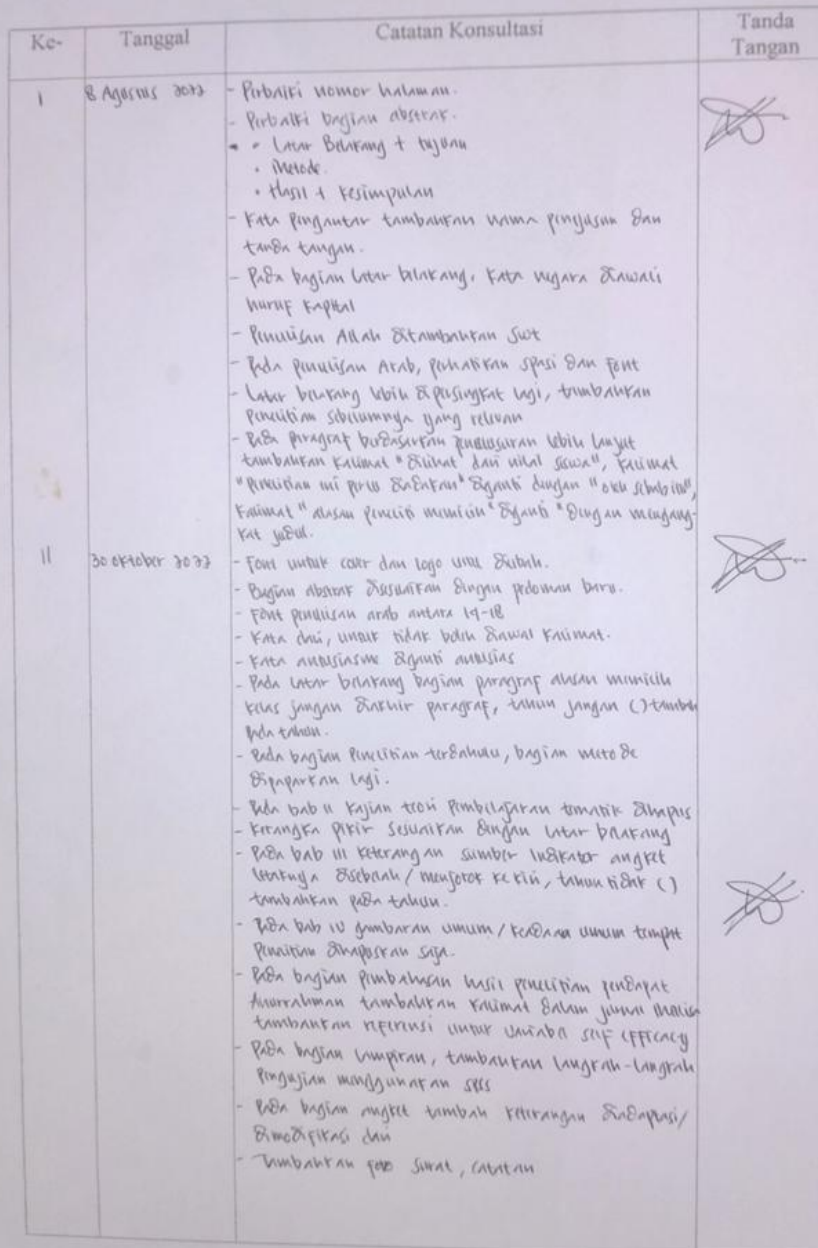 Ke- Tanggal Catatan Konsultasi Tanda Tangan
I 8 Agustus 2022 - Perbaiki nomor halaman.
- Perbaiki bagian abstrak.
• Latar Belakang + tujuan
• Metode.
• Hasil + kesimpulan
- Kata pengantar tambahkan nama penyusun dan
tanda tangan.
- Pada bagian latar belakang, kata negara diawali
huruf kapital
- Penulisan Allah ditambahkan Swt
- Pada penulisan Arab, perhatikan spasi dan font
- Latar belakang lebih dipersingkat lagi, tambahkan
penelitian sebelumnya yang relevan
- Pada paragraf berdasarkan penelusuran lebih lanjut
tambahkan kalimat "dilihat dari nilai siswa", kalimat
"penelitian ini perlu diganti dengan "oleh sebab itu",
kalimat "alasan peneliti memilih" diganti "dengan mengang-
kat judul.
II 30 oktober 2022 - Font untuk cover dan logo diubah.
- Bagian abstrak disesuaikan dengan pedoman baru.
- Font penulisan arab antara 14-18
- Kata dari, untuk tidak boleh diawal kalimat.
- Kata antusiasme diganti antusias
- Pada latar belakang bagian paragraf alasan memilih
kelas jangan diakhir paragraf, tahun jangan () tambah
pada tahun.
- Pada bagian penelitian terdahulu, bagian metode
dipaparkan lagi.
- Pada bab II kajian teori pembelajaran tematik dihapus
- Kerangka pikir sesuaikan dengan latar belakang
- Pada bab III keterangan sumber indikator angket
letaknya disebelah / menjorok ke kiri, tahun tidak ()
tambahkan pada tahun.
- Pada bab IV gambaran umum / keadaan umum tempat
penelitian dihapuskan saja.
- Pada bagian pembahasan hasil penelitian pendapat
Aunurrahman tambahkan kalimat dalam jurnal
tambahkan referensi untuk variabel self efficacy
- Pada bagian lampiran, tambahkan langkah-langkah
pengujian menggunakan SPSS
- Pada bagian angket tambah keterangan diadaptasi/
dimodifikasi dari
- Tambahkan foto surat, catatan